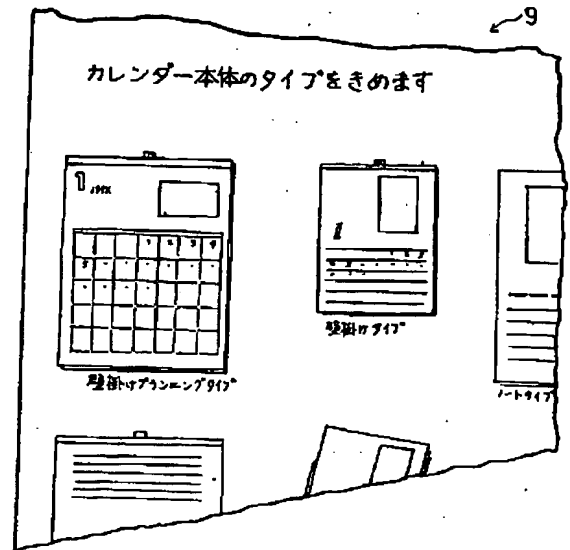 9
カレンダー本体のタイプをきめます
1
1
壁掛けプランニングタイプ
壁掛けタイプ
ノートタイプ